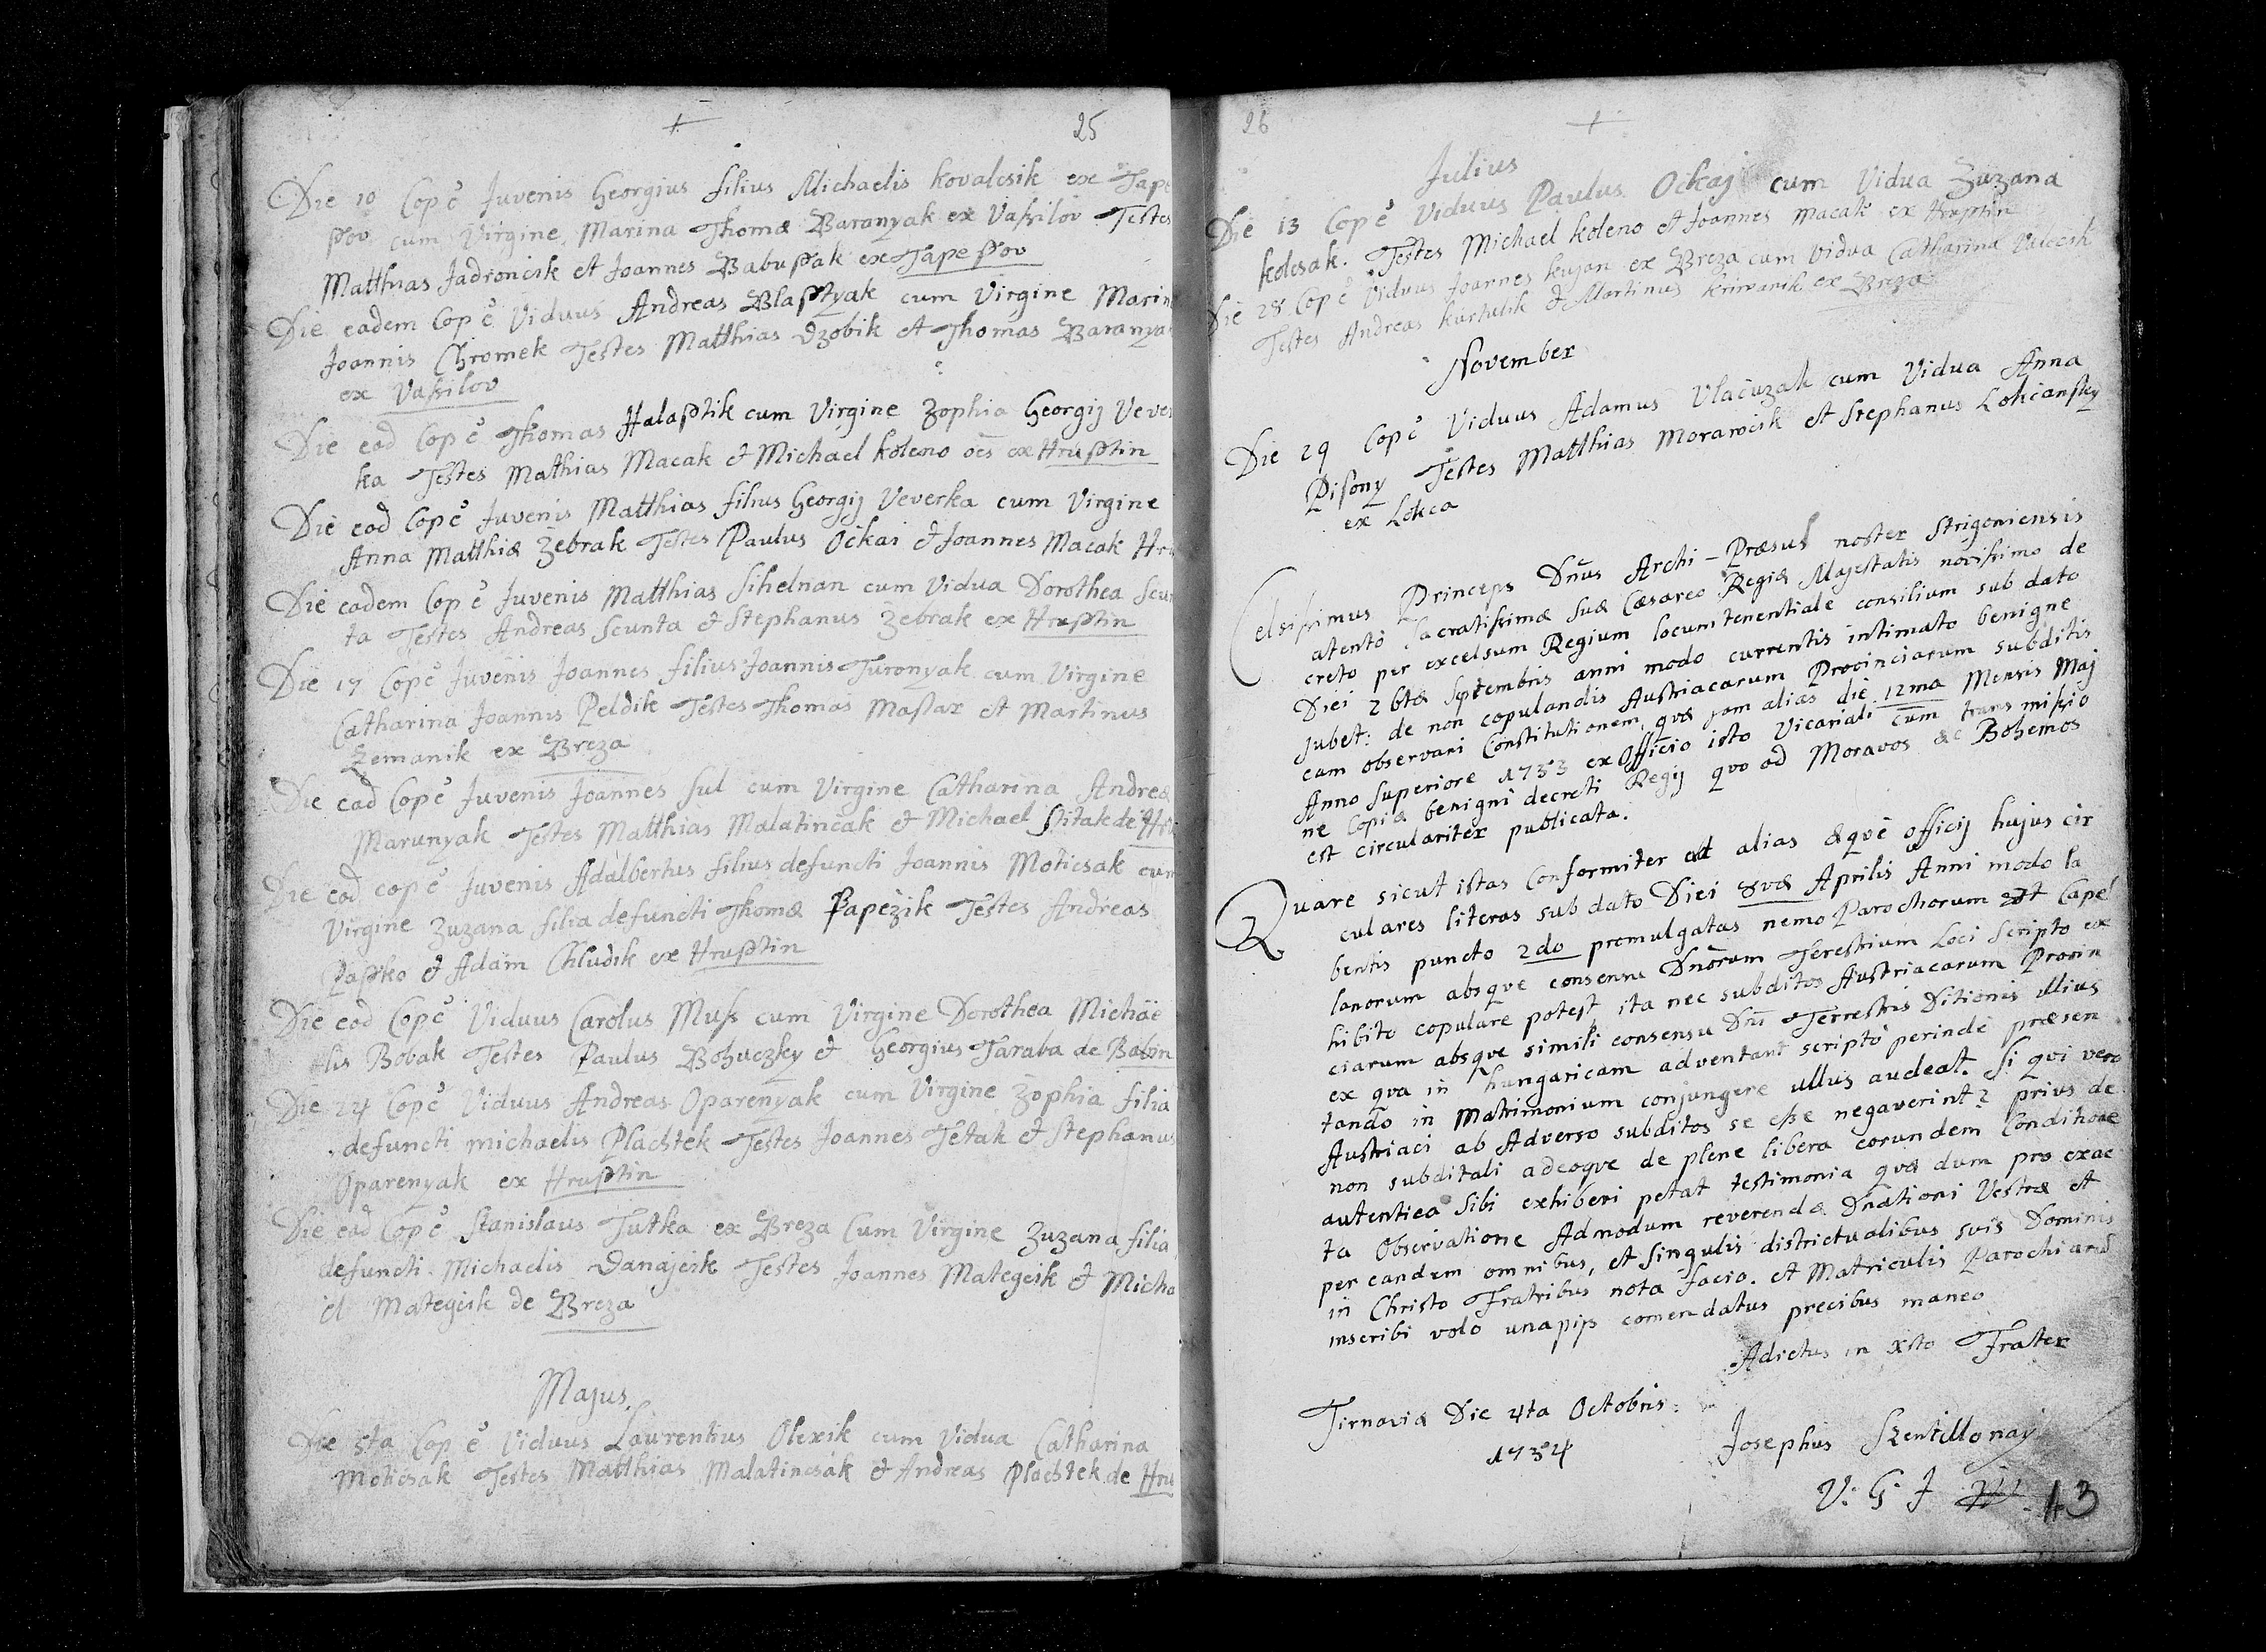 25
Die 10 Cop ē Juvenis Georgius filius Michaelis kovalcsik ex Tape
ſʒov cum Virgine Marina Thomæ Baranyak ex Vaſsilov Testes
Matthias Jadroncsik et Joannes Babuſʒak ex Tapeſʒov
Die eadem Cop ē Viduus Andreas Blaſʒtyak cum Virgine Marin
Joannis Chromek Testes Matthias Dzobik et Thomas Baranya
ex Vaſsilov
Die ead Cop ē Thomas Halaſʒtik cum Virgine Zophia Georgij Vever
ka Testes Mathias Macak et Michael koleno oēs ex Hruſʒtin
Die ead Cop ē Juvenis Matthias filius Georgij Veverka cum Virgine
Anna Matthiæ Zebrak Testes Paulus Ockai et Joannes Macak Hru
Die eadem Cop ē Juvenis Matthias Sihelnan cum Vidua Dorothea Scun
ta Testes Andreas Scunta et Stephanus Zebrak ex Hruſʒtin
Die 17 Cop ē Juvenis Joannes filius Joannis Turonyak cum Virgine
Catharina Joannis Peldik Testes Thomas Maſtar et Martinus
Zemanik ex Breza
Die ead Cop ē Juvenis Joannes Sul cum Virgine Catharina Andreæ
Marunyak Testes Matthias Malatinčak et Michael Stitak de Hru
Die ead cop ē Juvenis Adalbertus filius defuncti Joannis Moticsak cum
Virgine Zuzana filia defuncti Thomæ Papežik Testes Andreas
Paſʒko et Adam Chludik ex Hruſʒtin
Die ead Cop ē Viduus Carolus Muſs cum Virgine Dorothea Michae
lis Bobak Testes Paulus Bohuczky et Georgius Taraba de Babin
Die 24 Cop ē Viduus Andreas Oparenyak cum Virgine Zophia filia
defuncti michaelis Plachtek Testes Joannes Tetak et Stephanus
Oparenyak ex Hruſʒtin
Die ead Cop ē Stanislaus Tutka ex Breza Cum Virgine Zuzana filia
defuncti Michaelis Danajcik Testes Joannes Mategcik et Micha
el Mategcik de Breza
Majus
Die 5ta Cop ē Viduus Laurentius Olexik cum Vidua Catharina
Moticsak Testes Matthias Malatincsak et Andreas Plachtek de Hru
26
Julius
Die 13 Cop ē Viduus Paulus Ockaj cum Vidua Zuzana
kolcsak. Testes Michael koleno et Joannes Macak ex Hruſʒtin
Die 28 Cop ē Viduus Joannes kujan ex Breza cum Vidua Catharina
Testes Andreas et Martinus kriwanik ex Breza
November
Die 29 Cop ē Viduus Adamus Vlacuzak cum Vidua Anna
Piſony Testes Matthias Morawcik et Stephanus Lokcanſky
ex Lokca
Celsiſsimus Princeps Dnūs Archi-Præsul noster Strigoniensis
atento Sacratiſsimæ Suæ Cæsareo Regiæ Majestatis noviſsimo de
creto per excelsum Regium locumtenentiale consilium sub dato
Diei 2btæ Septembris anni modo currentis intimato benigne
jubet: de non copulandis Austriacarum Provinciarum subditis
eam observari Constitutionem, quæ jam alias die 12ma Mensis Maj
Anno Superiore 1733 ex Officio isto Vicariali cum transmiſsio
ne Copiæ benigni decreti Regij quo ad Moravos ac Bohemos
est circulariter publicata.
Quare sicut istas Conformiter ad alias æque officij hujus cir
culares literas sub dato Diei 8væ Aprilis Anni modo la
bentis puncto 2do promulgatas nemo Parochorum et Capel
lanorum absque consensu Dnōrum Terestrium Loci Scripto ex
hibito copulare potest ita nec subditos Austriacarum Provin
ciarum absque simili consensu Dni Terrestris Ditionis illius
ex qva in hungaricam adventant scripto perinde præsen
tando in Matrimonium conjungere ullus audeat. Si qvi vero
Austriaci ab Adverso subditos se eſse negaverint prius de
non subditali adeoqve de plene libera eorundem Conditione
autentica Sibi exhiberi petat testimonia qvæ dum pro exac
ta Observatione Admodum reverendæ Dnationi Vestræ et
per eandem omnibus, et Singulis districtualibus suis Dominis
in Christo Fratribus nota facio. et Matriculis Parochiarū
inscribi volo una pijs comendatus precibus maneo
Adictus in Xsto Frater
Tirnaviæ Die 4ta Octobris:
1734
Josephus Szentillonay
V. G. J
13